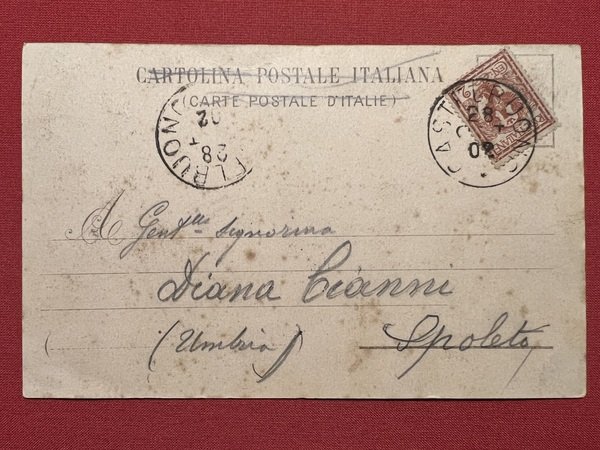 CARTOLINA POSTALE ITALIANA
(CARTE POSTALE D'ITALIE)
CASTELBUONO
28
02
ELBUONO
28
02
A Gent.lle Signorina
Diana Cianni
(Umbria) Spoleto